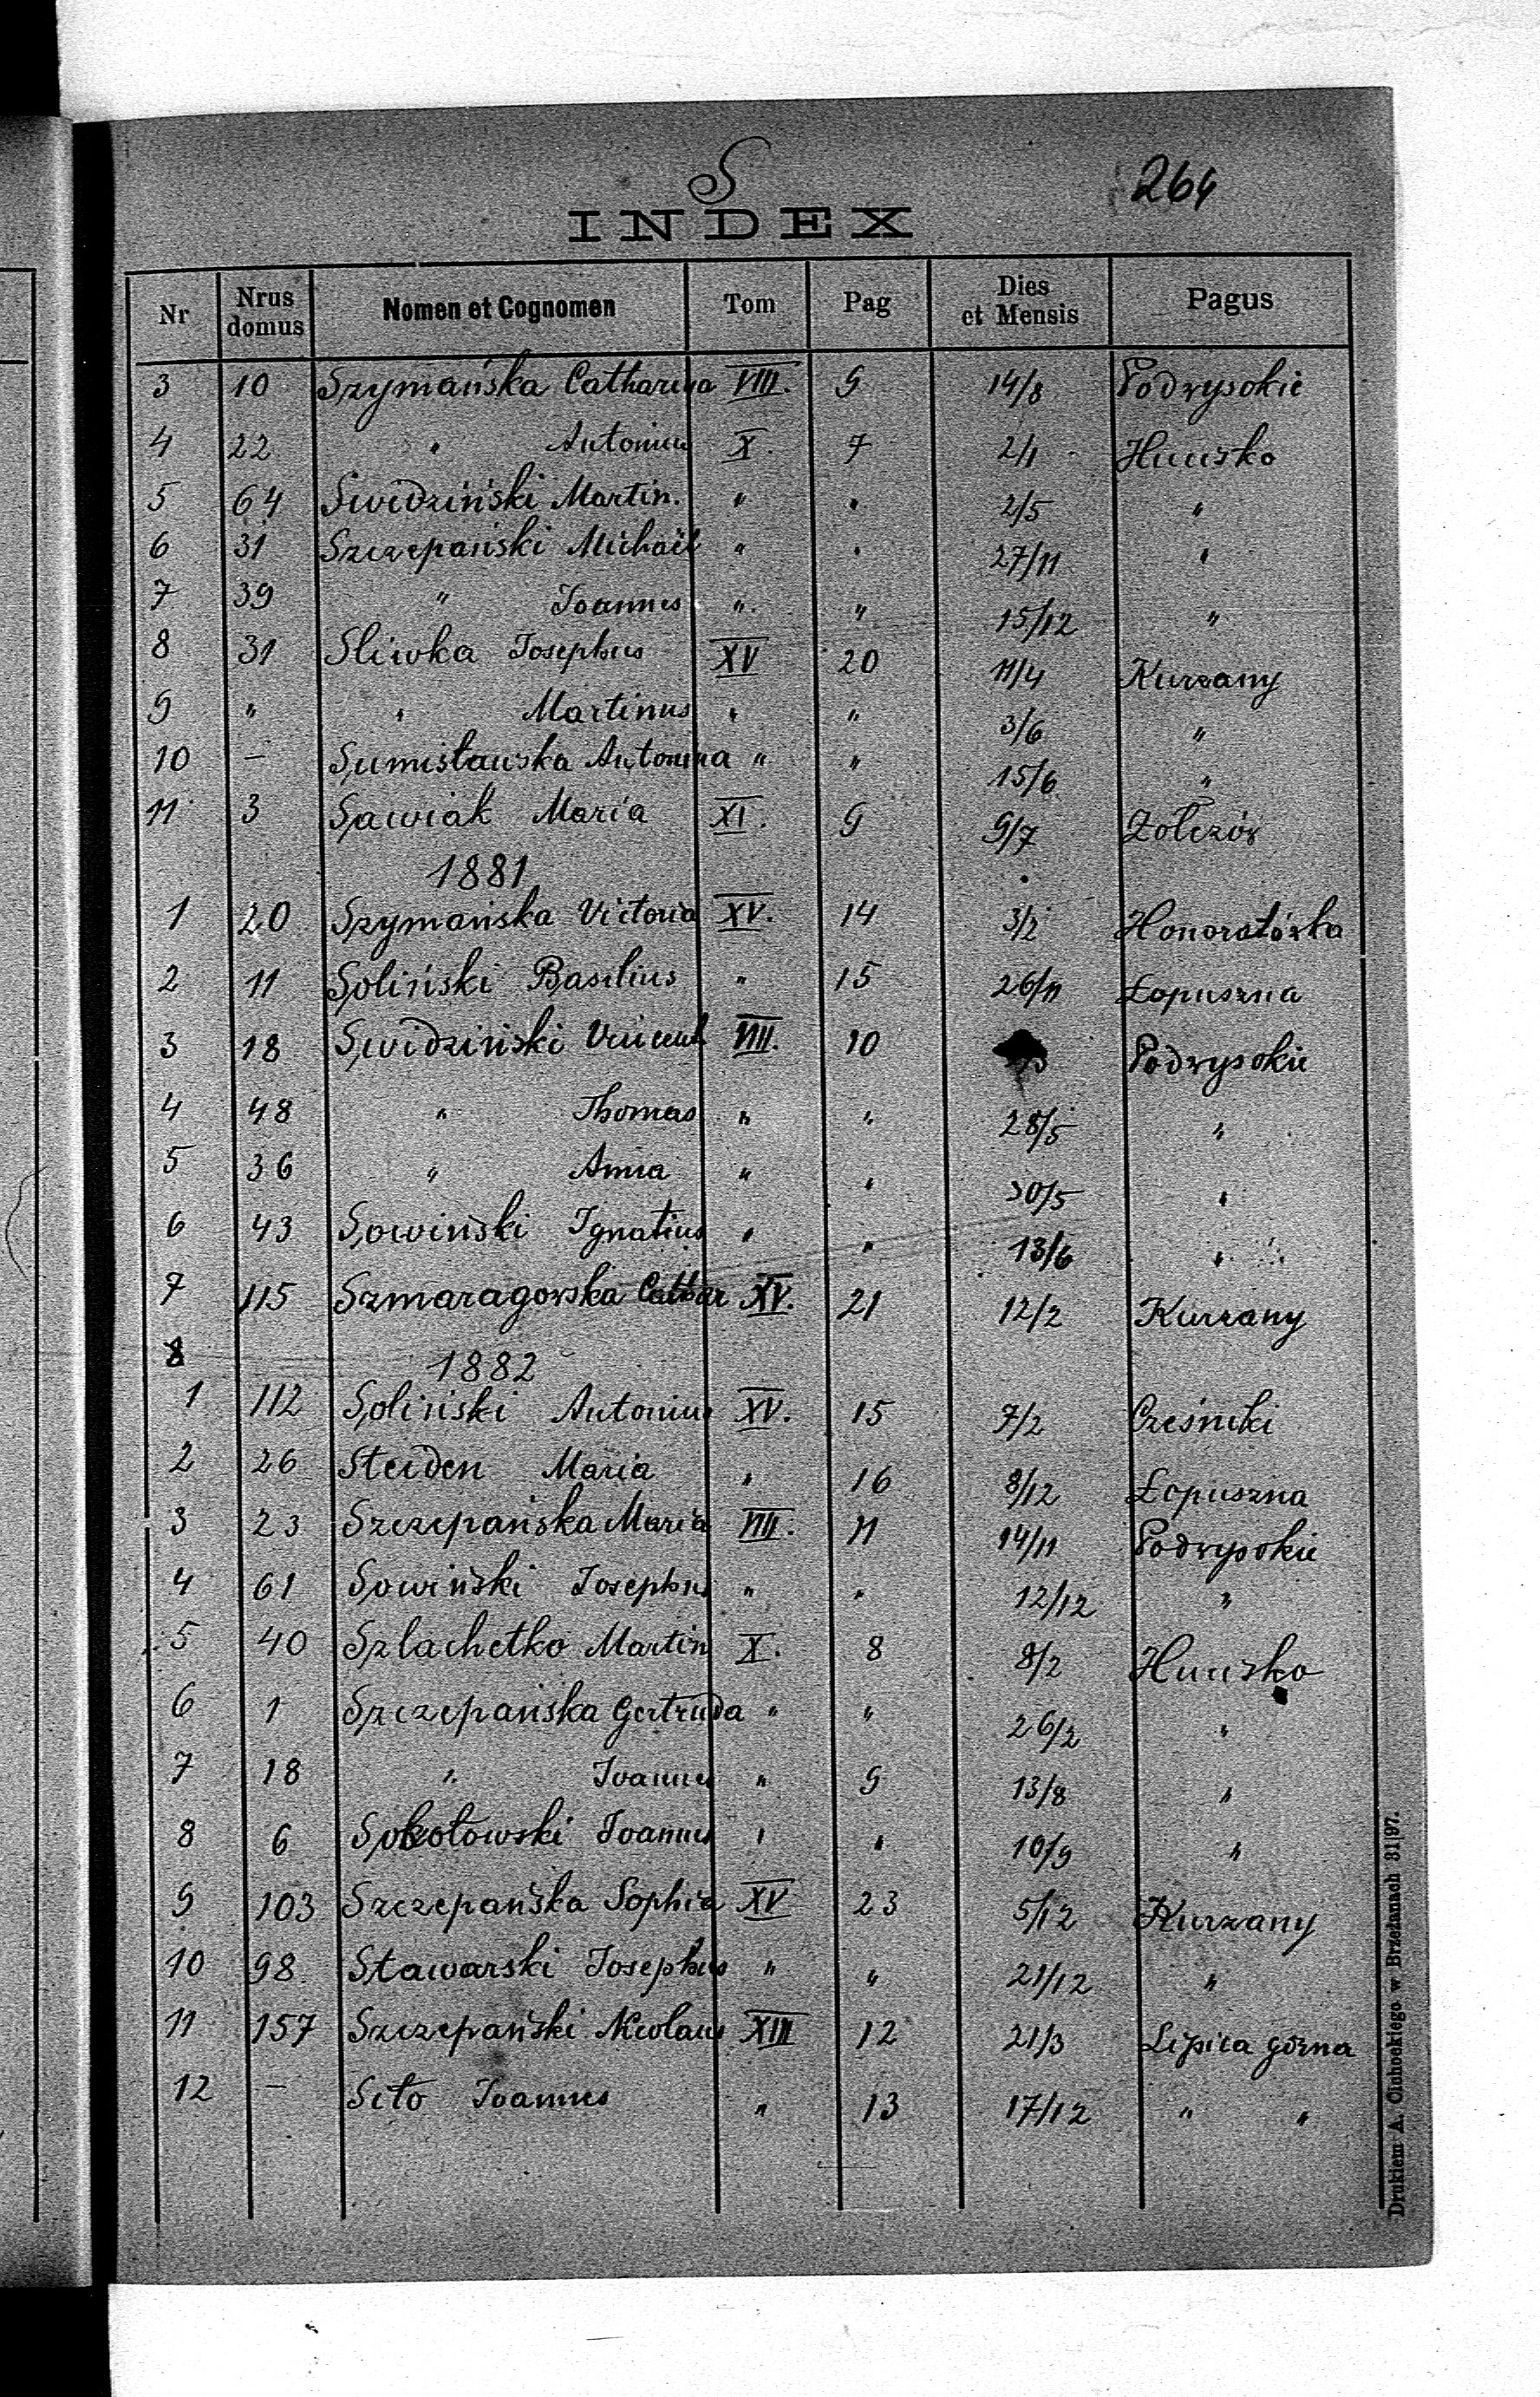 S
264
INDEX
Nr Nrus domus Nomen et Cognomen Tom Pag Dies et Mensis Pagus
3 10 Szymańska Catharina VIII. 9 14/8 Podwysokie
4 22 " Antonius X. 7 2/1 Hucisko
5 64 Swidziński Martin. " " 2/5 "
6 31 Szczepański Michaël " " 27/11 "
7 39 " Joannes " " 15/12 "
8 31 Sliwka Josephus XV 20 11/4 Kurzany
9 " " Martinus " " 3/6 "
10 — Sumisławska Antonina " " 15/6 "
11 3 Sawiak Maria XI. 9 9/7 Zołczów
1881
1 20 Szymańska Victoria XV. 14 3/2 Honoratówka
2 11 Soliński Basilius " 15 26/11 Łopuszna
3 18 Swidziński Vincent VIII. 10 Podwysokie
4 48 " Thomas " " 28/5 "
5 36 " Anna " " 30/5 "
6 43 Sowiński Ignatius " " 13/6 "
7 115 Szmaragowska Cathar XV. 21 12/2 Kurzany
8 1882
1 112 Soliński Antonius XV. 15 7/2 Cześniki
2 26 Steiden Maria " 16 8/12 Łopuszna
3 23 Szczepańska Maria VIII. 11 14/11 Podwysokie
4 61 Sowiński Josephus " " 12/12 "
5 40 Szlachetko Martin X. 8 8/2 Hucisko
6 1 Szczepańska Gertruda " " 26/2 "
7 18 " Joannes " 9 13/8 "
8 6 Sokołowski Joannes " " 10/9 "
9 103 Szczepańska Sophia XV 23 5/12 Kurzany
10 98 Stawarski Josephus " " 21/12 "
11 157 Szczepański Nicolaus XIII 12 21/3 Lipica górna
12 — Sito Joannes " 13 17/12 " "
Drukiem A. Cichockiego w Brzeżanach 31|97.